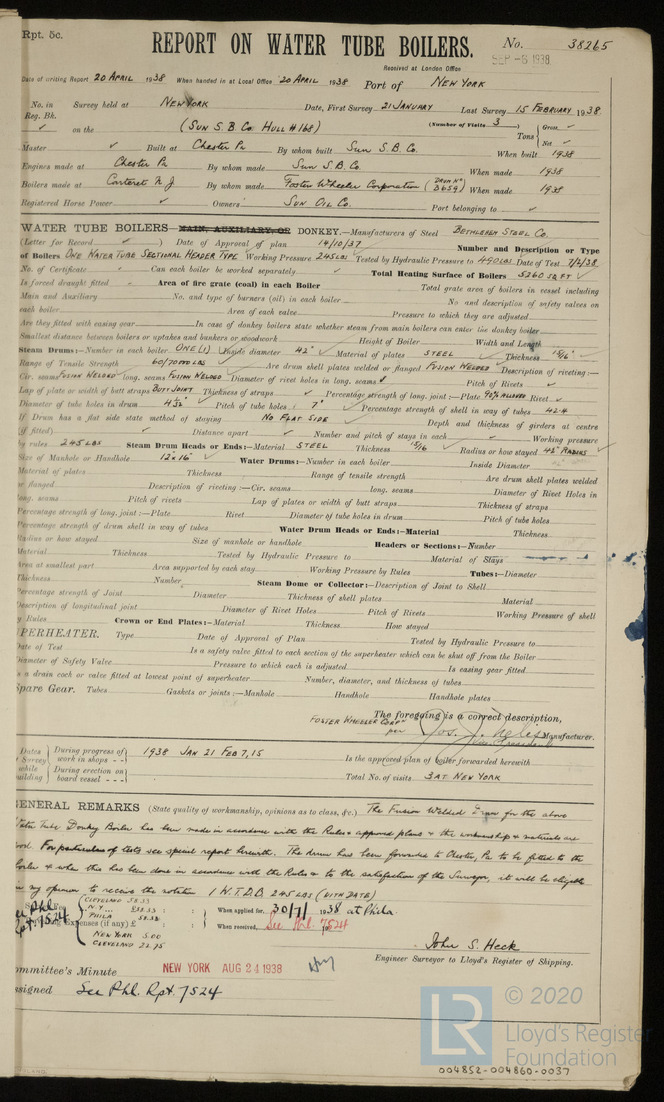 Rpt. 5c.
REPORT ON WATER TUBE BOILERS.
No. 38265
SEP -8 1938
Received at London Office
Date of writing Report 20 APRIL 1938 When handed in at Local Office 20 APRIL 1938 Port of NEW YORK
No. in Survey held at NEW YORK Date, First Survey 21 JANUARY Last Survey 15 FEBRUARY 1938
Reg. Bk.
(Number of Visits 3)
✓ on the (SUN S. B. Co. HULL # 168) Tons { Gross ✓
Net ✓
Master ✓ Built at Chester Pa By whom built Sun S. B. Co. When built 1938
Engines made at Chester Pa By whom made Sun S. B. Co. When made 1938
Boilers made at Carteret N. J. By whom made Foster Wheeler Corporation (DRUM No B659) When made 1938
Registered Horse Power ✓ Owners Sun Oil Co. Port belonging to ✓
WATER TUBE BOILERS MAIN, AUXILIARY, OR DONKEY.—Manufacturers of Steel BETHLEHEM STEEL Co.
(Letter for Record ✓ ) Date of Approval of plan 14/10/37 Number and Description or Type
of Boilers ONE WATER TUBE SECTIONAL HEADER TYPE Working Pressure 245 LBS Tested by Hydraulic Pressure to 490 LBS Date of Test 7/2/38
No. of Certificate Can each boiler be worked separately Total Heating Surface of Boilers 5260 SQ FT ✓
Is forced draught fitted Area of fire grate (coal) in each Boiler Total grate area of boilers in vessel including
Main and Auxiliary No. and type of burners (oil) in each boiler No and description of safety valves on
each boiler Area of each valve Pressure to which they are adjusted
Are they fitted with easing gear In case of donkey boilers state whether steam from main boilers can enter the donkey boiler
Smallest distance between boilers or uptakes and bunkers or woodwork Height of Boiler Width and Length
Steam Drums:—Number in each boiler ONE (1) Inside diameter 42" ✓ Material of plates STEEL Thickness 15/16" ✓
Range of Tensile Strength 60/70000 LBS ✓ Are drum shell plates welded or flanged FUSION WELDED Description of riveting:—
Cir. seams FUSION WELDED long. seams FUSION WELDED Diameter of rivet holes in long. seams ✓ Pitch of Rivets ✓
Lap of plate or width of butt straps BUTT JOINT Thickness of straps ✓ Percentage strength of long. joint:—Plate 90% ALLOWED Rivet ✓
Diameter of tube holes in drum 4 1/32" Pitch of tube holes 7" Percentage strength of shell in way of tubes 42.4
If Drum has a flat side state method of staying NO FLAT SIDE ✓ Depth and thickness of girders at centre
(if fitted) ✓ Distance apart ✓ Number and pitch of stays in each ✓ Working pressure
by rules 245 LBS Steam Drum Heads or Ends:—Material STEEL Thickness 15/16 Radius or how stayed 42" RADIUS ✓
Size of Manhole or Handhole 12" x 16" ✓ Water Drums:—Number in each boiler Inside Diameter
Material of plates Thickness Range of tensile strength Are drum shell plates welded
or flanged Description of riveting:—Cir. seams long. seams Diameter of Rivet Holes in
long. seams Pitch of rivets Lap of plates or width of butt straps Thickness of straps
Percentage strength of long. joint:—Plate Rivet Diameter of tube holes in drum Pitch of tube holes
Percentage strength of drum shell in way of tubes Water Drum Heads or Ends:—Material Thickness
Radius or how stayed Size of manhole or handhole Headers or Sections:—Number
Material Thickness Tested by Hydraulic Pressure to Material of Stays
Area at smallest part Area supported by each stay Working Pressure by Rules Tubes:—Diameter
Thickness Number Steam Dome or Collector:—Description of Joint to Shell
Percentage strength of Joint Diameter Thickness of shell plates Material
Description of longitudinal joint Diameter of Rivet Holes Pitch of Rivets Working Pressure of shell
by Rules Crown or End Plates:—Material Thickness How stayed
UPERHEATER. Type Date of Approval of Plan Tested by Hydraulic Pressure to
Date of Test Is a safety valve fitted to each section of the superheater which can be shut off from the Boiler
Diameter of Safety Valve Pressure to which each is adjusted Is easing gear fitted
Is a drain cock or valve fitted at lowest point of superheater Number, diameter, and thickness of tubes
Spare Gear. Tubes Gaskets or joints:—Manhole Handhole Handhole plates
The foregoing is a correct description,
FOSTER WHEELER CORPN
per Jos. J. Manufacturer.
Vice President
Dates of Survey while building { During progress of work in shops - - } 1938 JAN 21 FEB 7, 15 Is the approved plan of boiler forwarded herewith
{ During erection on board vessel - - - } Total No. of visits 3 AT NEW YORK
GENERAL REMARKS (State quality of workmanship, opinions as to class, &c.) The Fusion Welded Drum for the above
Water Tube Donkey Boiler has been made in accordance with the Rules & approved plans & the workmanship & materials are
good. For particulars of tests see special report herewith. The drum has been forwarded to Chester, Pa to be fitted to the
boiler & when this has been done in accordance with the Rules & to the satisfaction of the Surveyor, it will be eligible
in my opinion to receive the notation 1 W.T.D.B. 245 LBS (WITH DATE)
See Phl. Rpt. 7524
CLEVELAND 33.33
N.Y. £33.33
PHILA 33.33
When applied for, 30/7/1938 at Phila.
Expenses (if any) £
NEW YORK 5.00
CLEVELAND 23.75
When received, See Phl. 7524
John S. Heck
Engineer Surveyor to Lloyd's Register of Shipping.
ommittee's Minute NEW YORK AUG 24 1938
ssigned See Phl. Rpt. 7524
© 2020
LR
Lloyd's Register
Foundation
004852-004860-0037